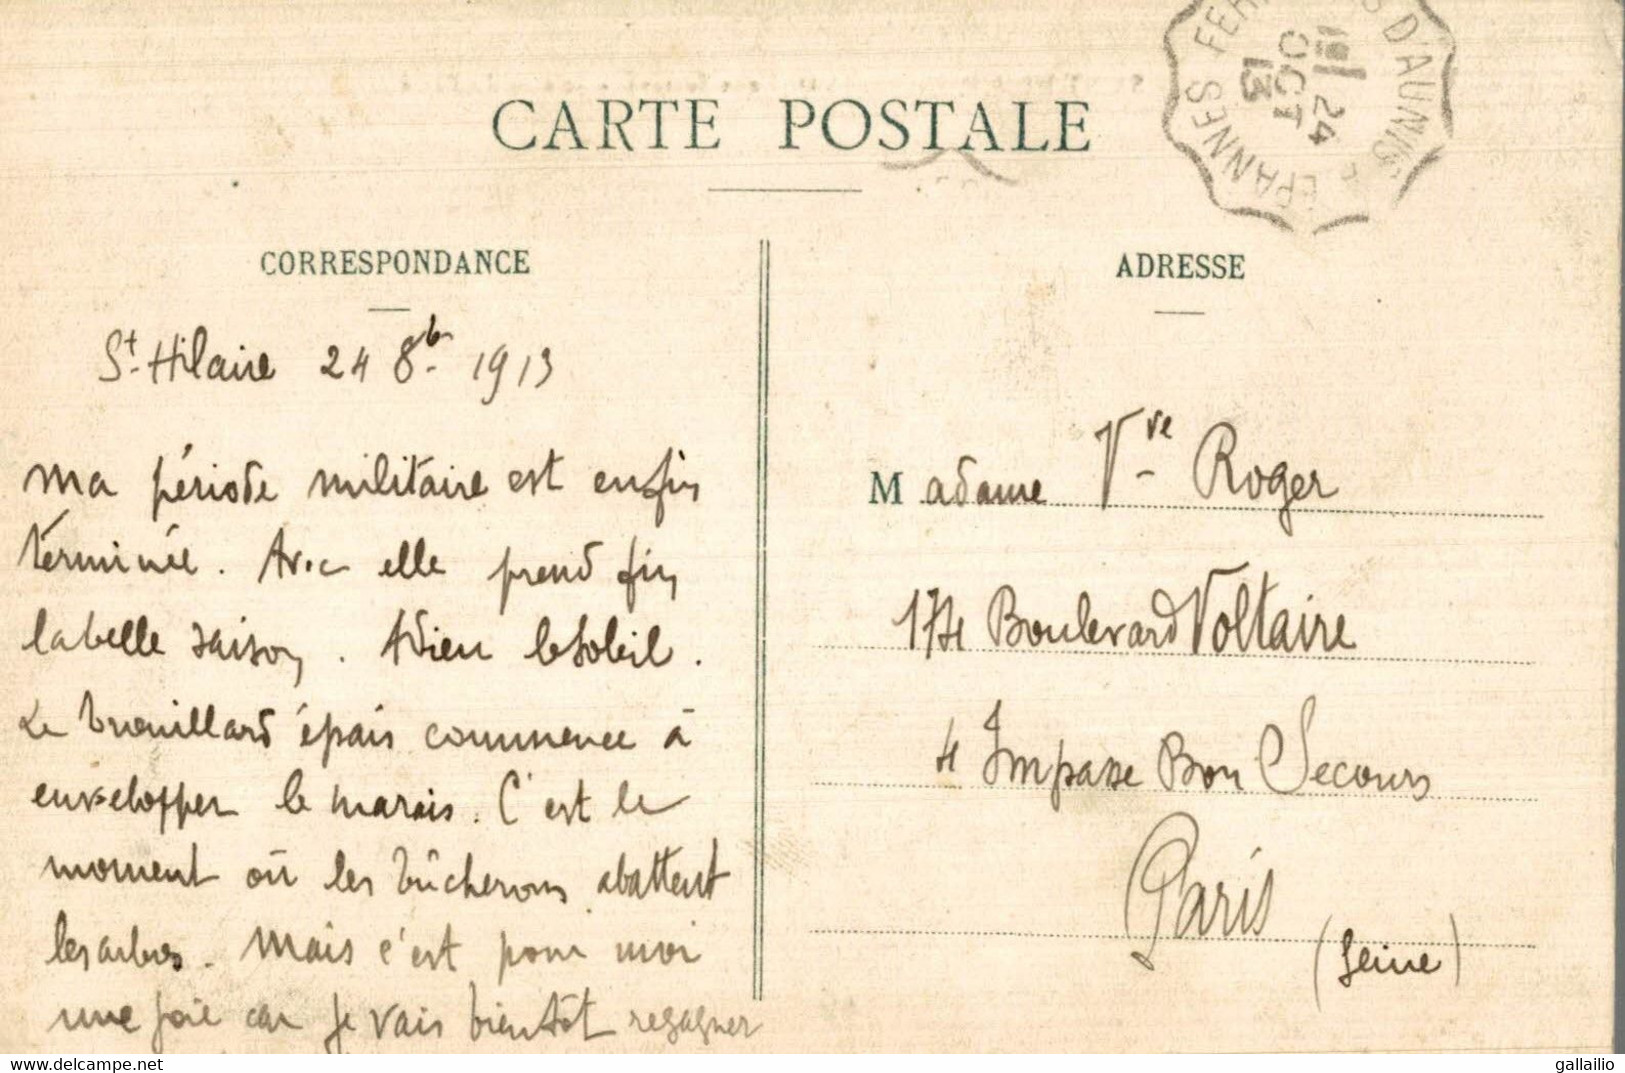 CARTE POSTALE
EPANNES FER D'AUNIS
24
OCT
13
CORRESPONDANCE
St Hilaire 24 8b 1913
Ma période militaire est enfin
terminée. Avec elle prend fin
la belle saison. Adieu le soleil.
Le brouillard épais commence à
envelopper le marais. C'est le
moment où les bûcherons abattent
les arbres. Mais c'est pour moi
une joie car je vais bientôt regagner
ADRESSE
Madame Vve Roger
174 Boulevard Voltaire
4 Impasse Bon Secours
Paris
(Seine)
gallailio